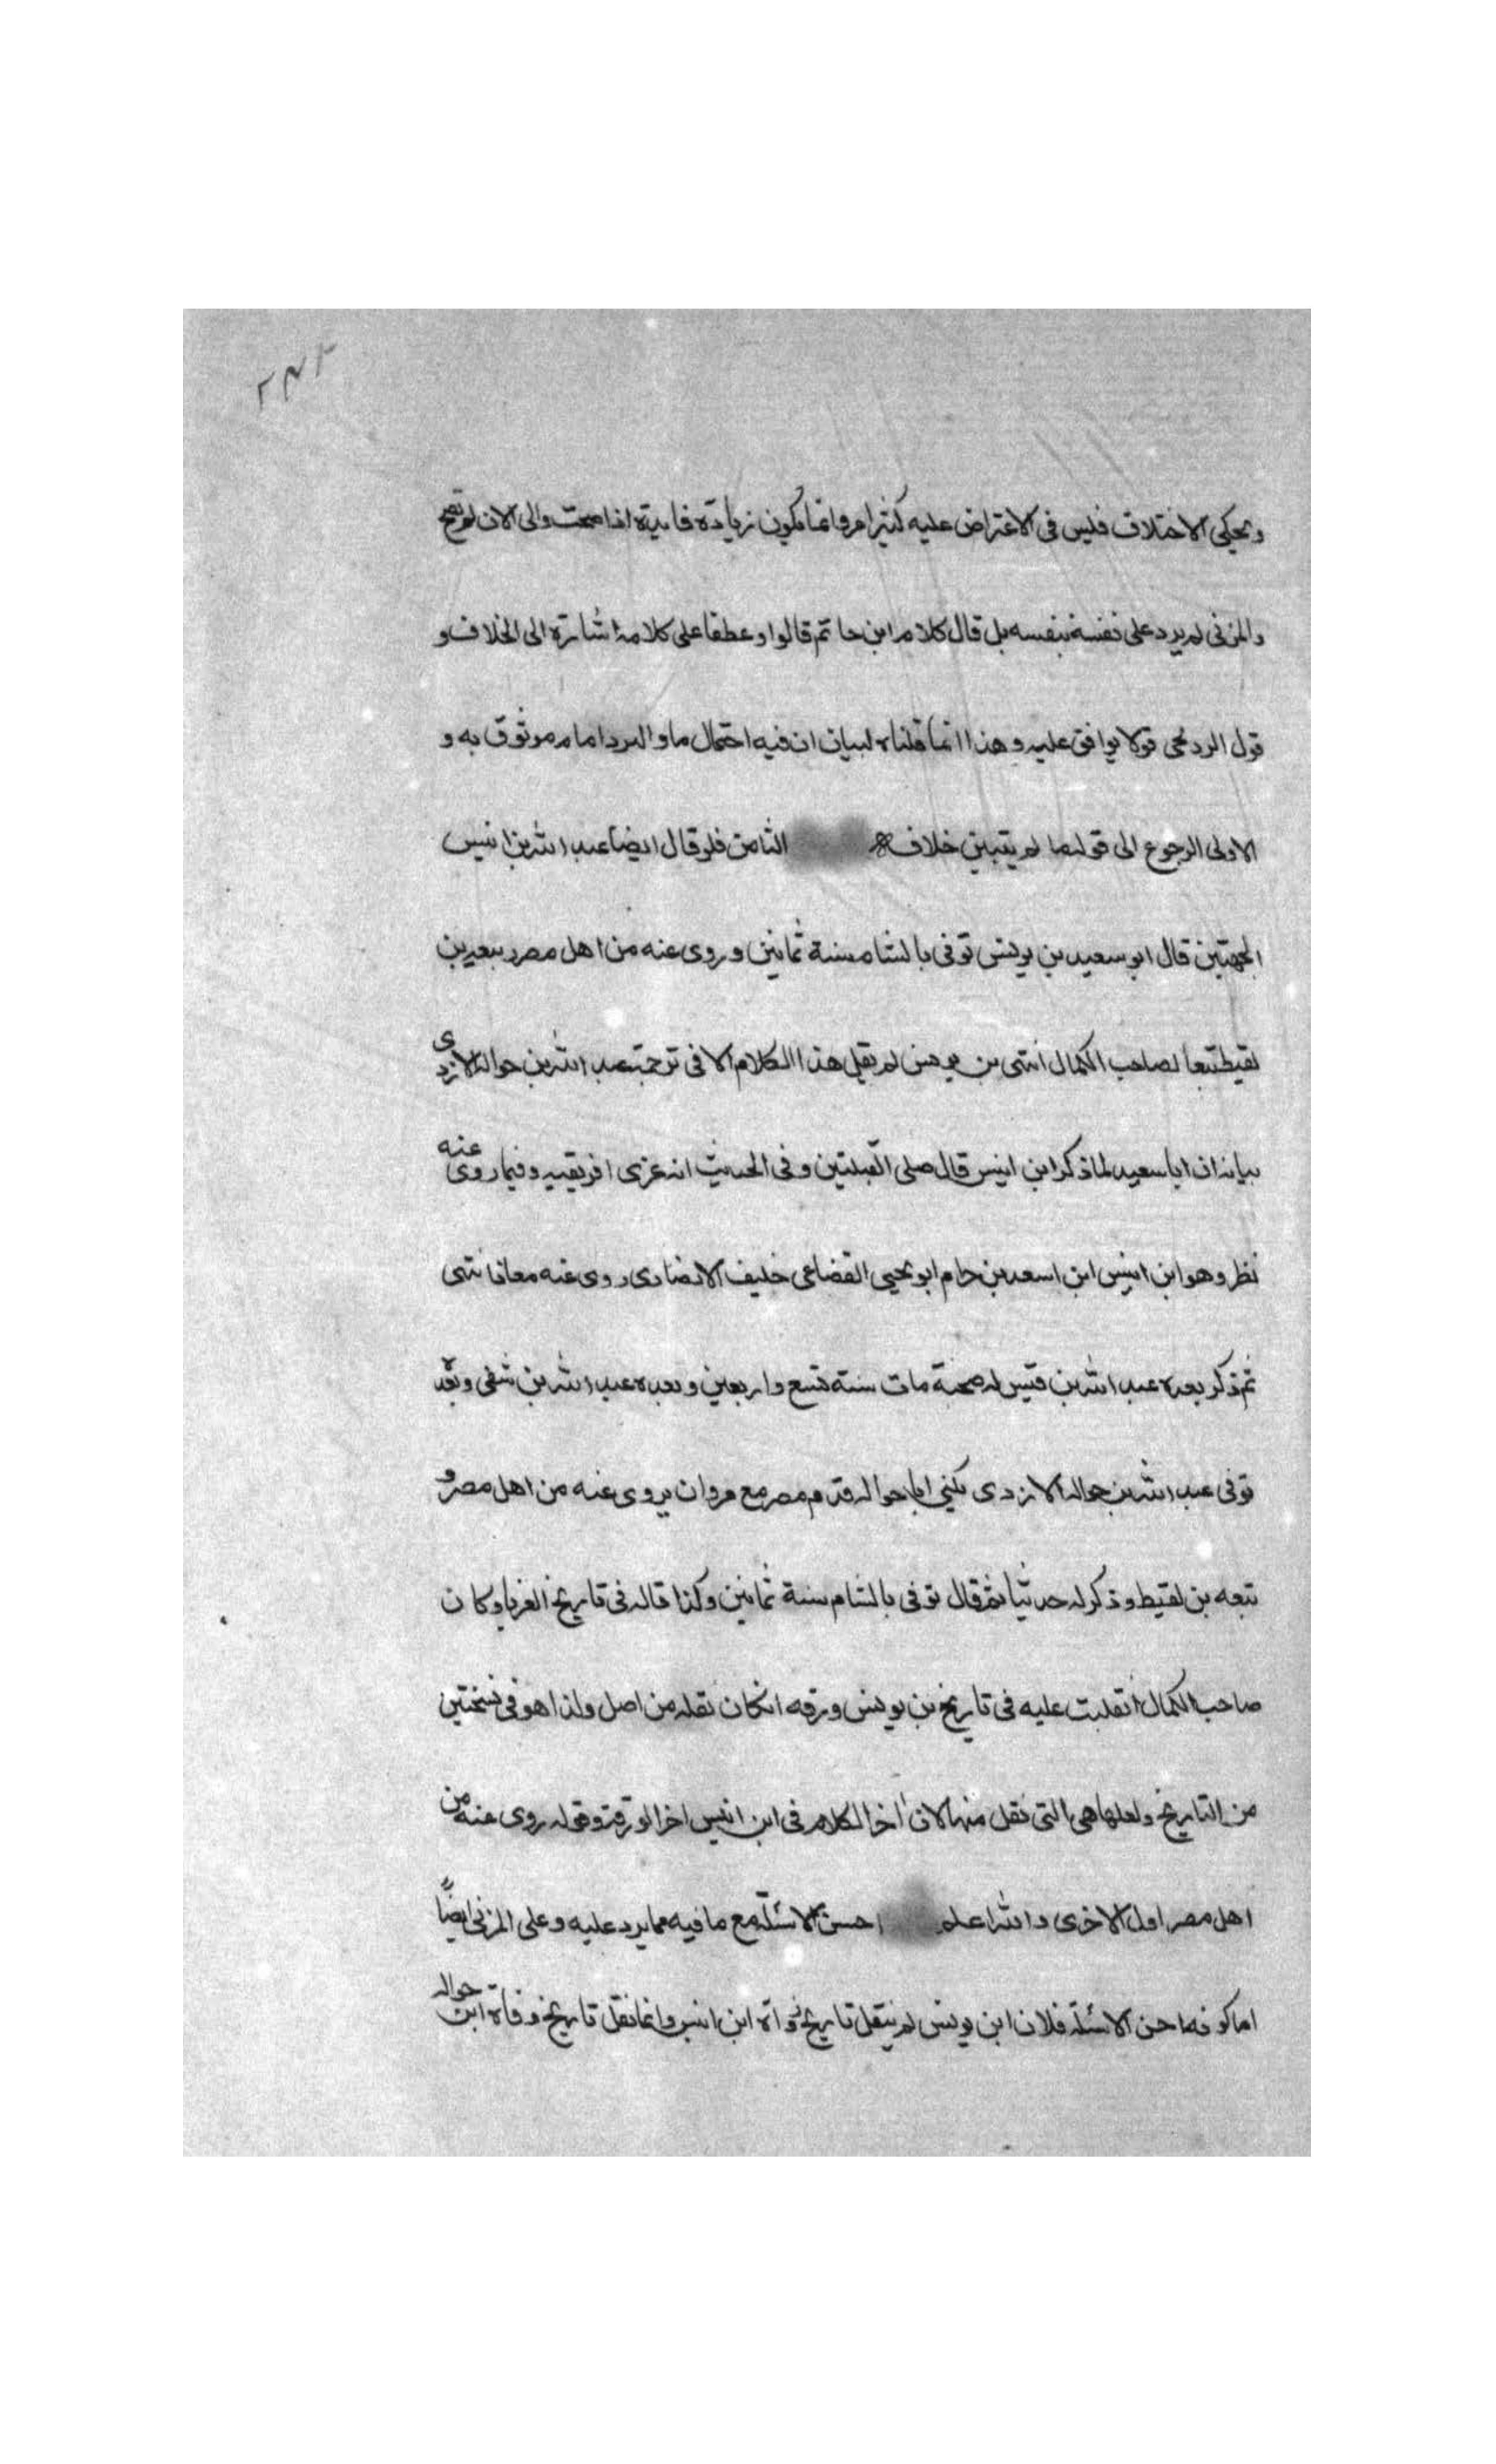 ٢٨٢
ويحكى الاختلاف فليس فى الاعتراض عليه كثير امر وانما تكون زيادة فايدة اذا صحت والى الان لم تصح
والمزنى لم يرد على نفسه بنفسه بل قال كلام ابن حاتم قالوا وعطفا على كلامه اشارة الى الخلاف و
قول البردعى قولا يوافق عليه وهذا انما قلناه لبيان ان فيه احتمال ما و امام موثوق به و
الاولى الرجوع الى قوله ما لم يتبين خلافه الثامن فلو قال ايضا عبد الله بن انيس
الجهنى قال ابو سعيد بن يونس توفى بالشام سنة ثمانين وروى عنه من اهل مصر ربيعه بن
لقيط تبعا لصاحب الكمال انتهى بن يونس لم يقل هذا الكلام الا فى ترجمة عبد الله بن حواله الازدى
بيانه ان ابا سعيد لما ذكر ابن انيس قال صلى القبلتين وفى الحديث انه غزى افريقيه وفيما روى عنه
نظر وهو ابن انيس ابن اسعد بن حرام ابو يحيى القضاعى حليف الانصارى روى عنه معاذ انتهى
ثم ذكر بعده عبد الله بن قيس له صحبة مات سنة تسع واربعين وبعده عبد الله بن شفى وبعده
توفى عبد الله بن حواله الازدى يكنى ابا حواله قدم مصر مع مروان يروى عنه من اهل مصر و
تبعه بن لقيط وذكر له حديثا ثم قال توفى بالشام سنة ثمانين وكذا قاله فى تاريخ الغربا وكان
صاحب الكمال انقلبت عليه فى تاريخ بن يونس ورقه ان كان نقله من اصل ولذا هو فى نسختين
من التاريخ ولعلها هى التى نقل منها لان اخر الكلام فى ابن انيس اخر الورقة وقوله روى عنه من
اهل مصر اول الاخرى والله اعلم احسن الاسئلة مع ما فيه مما يرد عليه وعلى المزنى ايضًا
اما كونه احسن الاسئلة فلان ابن يونس لم ينقل تاريخ وفاة ابن انيس وانما نقل تاريخ وفاة ابن حواله